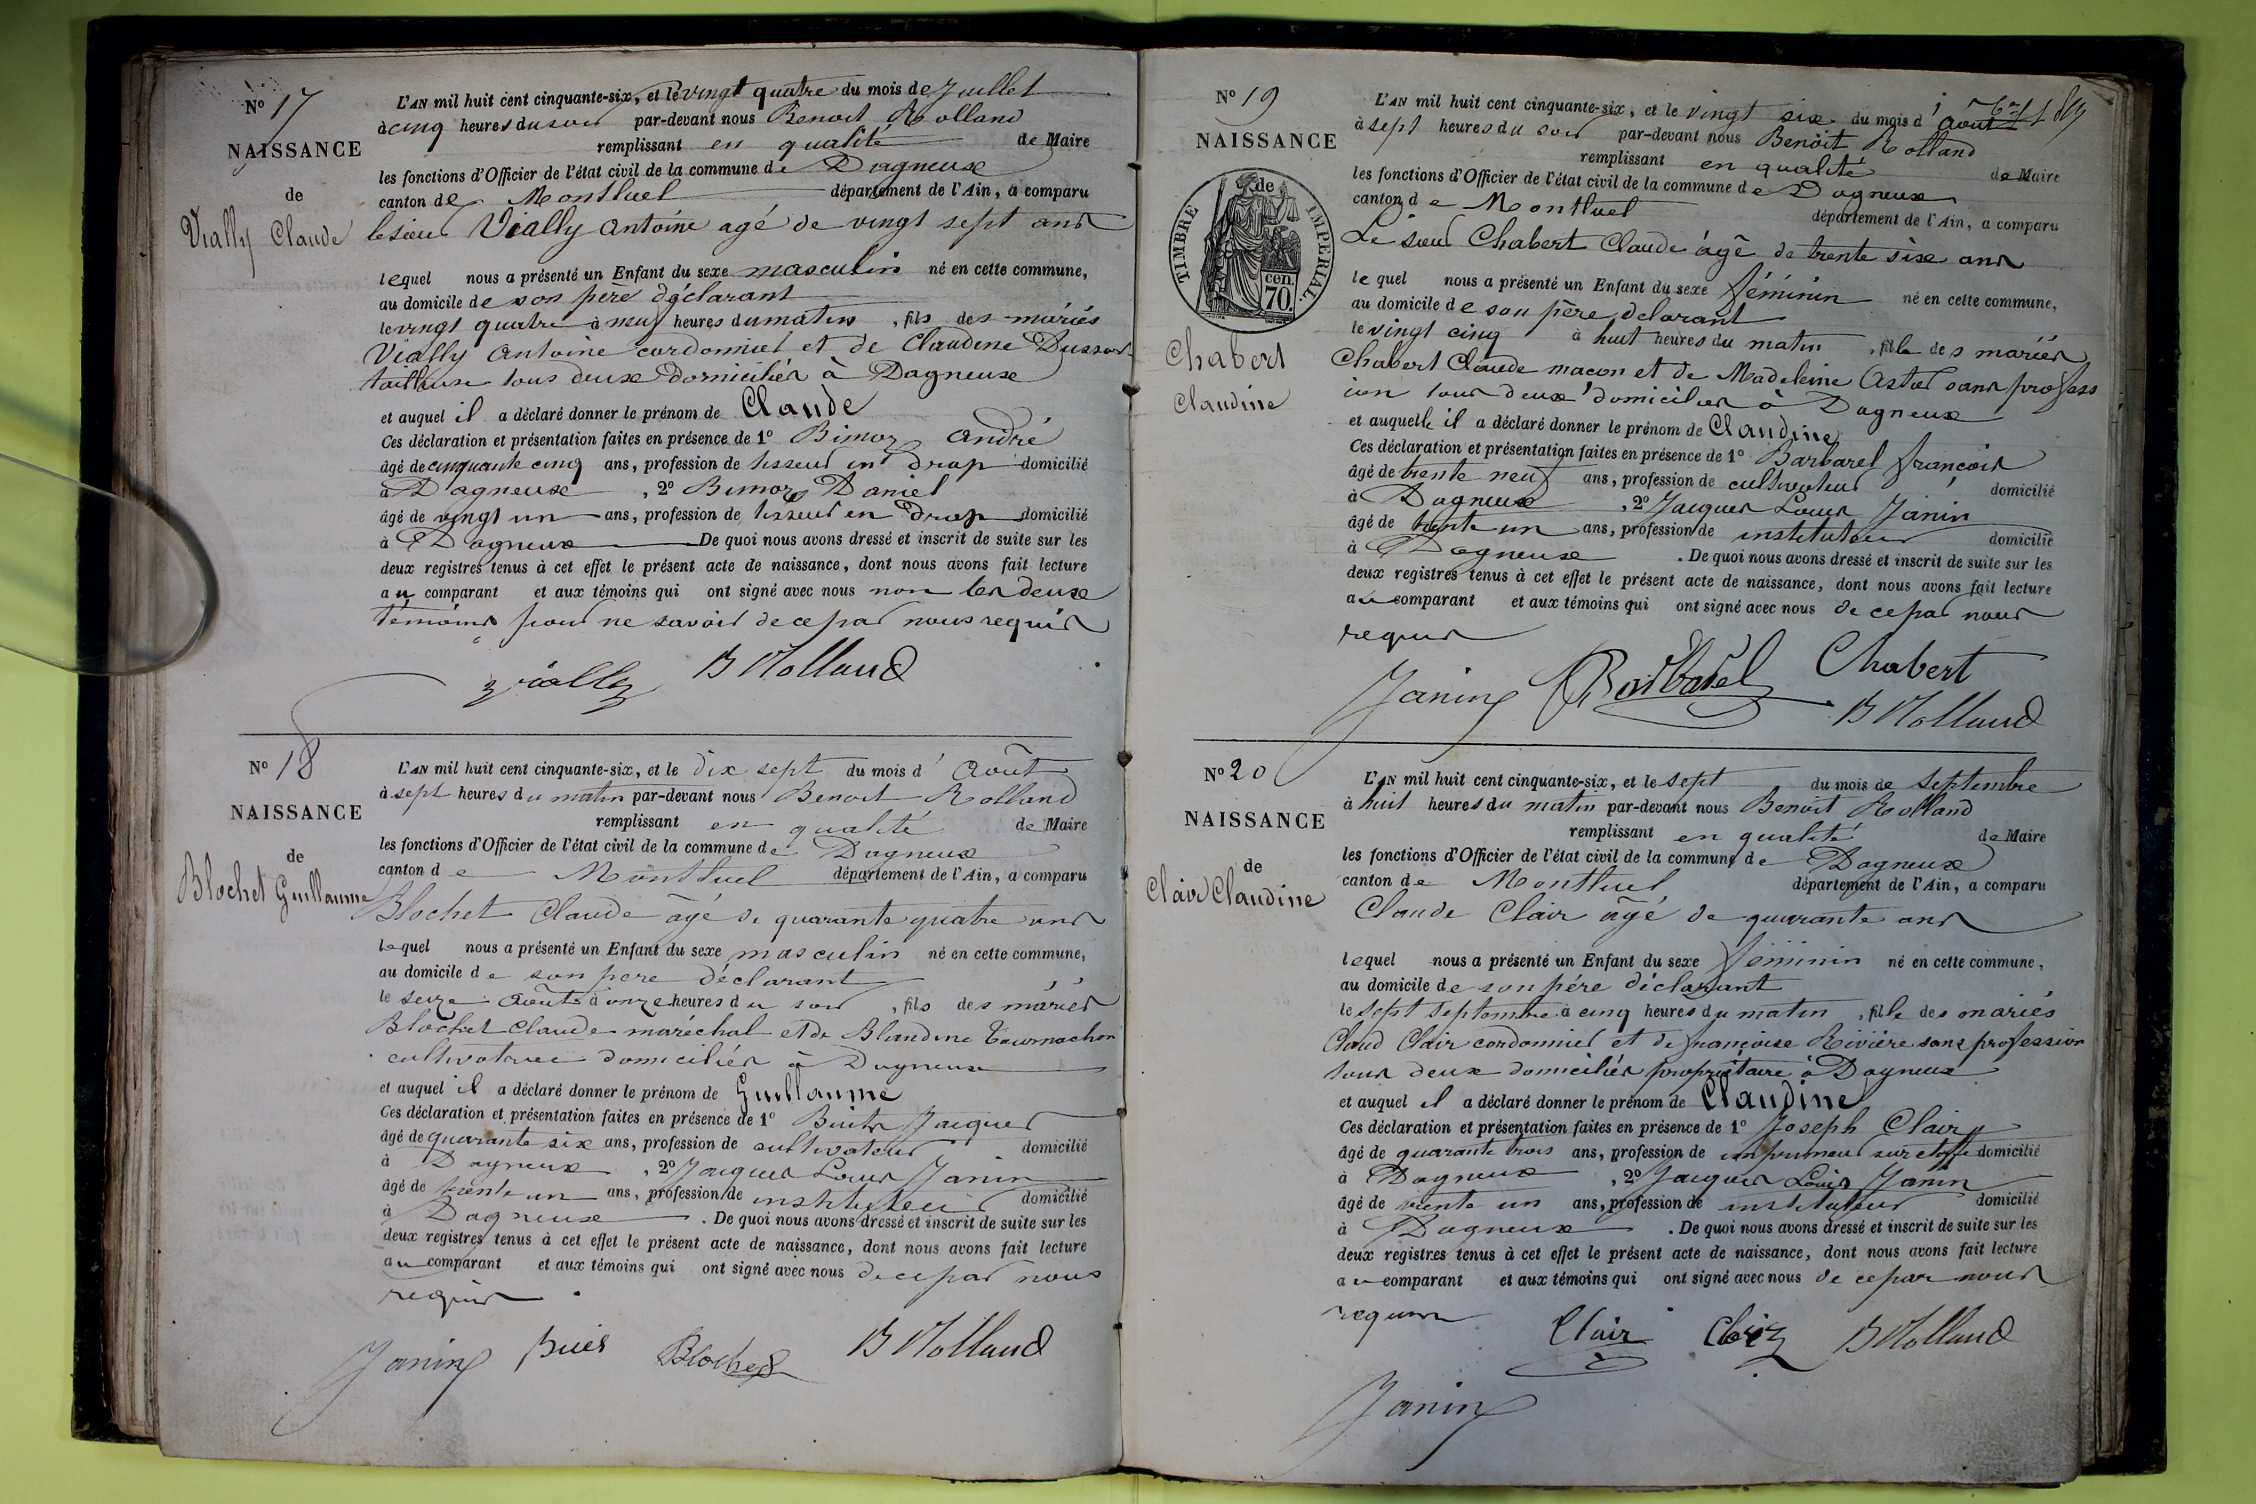 N° 17
NAISSANCE
de
Vially Claude
L'AN mil huit cent cinquante-six, et le vingt quatre du mois de Juillet
à cinq heures du soir par-devant nous Benoit Rolland
remplissant en qualité de Maire
les fonctions d'Officier de l'état civil de la commune de Dagneux
canton de Montluel département de l'Ain, a comparu
le sieur Vially Antoine agé de vingt sept ans
lequel nous a présenté un Enfant du sexe masculin né en cette commune,
au domicile de son père déclarant
le vingt quatre à neuf heures du matin, fils des mariés
Vially Antoine cordonnier et de Claudine
tailleuse tous deux domiciliés à Dagneux
et auquel il a déclaré donner le prénom de Claude
Ces déclaration et présentation faites en présence de 1° Bimoz André
âgé de cinquante cinq ans, profession de tisseur en drap domicilié
à Dagneux, 2° Bimoz Daniel
âgé de vingt un ans, profession de tisseur en drap domicilié
à Dagneux De quoi nous avons dressé et inscrit de suite sur les
deux registres tenus à cet effet le présent acte de naissance, dont nous avons fait lecture
au comparant et aux témoins qui ont signé avec nous non les deux
témoins pour ne savoir de ce par nous requis
Vially B Rolland
N° 18
NAISSANCE
de
Blochet Guillaume
L'AN mil huit cent cinquante-six, et le dix sept du mois d'Août
à sept heures du matin par-devant nous Benoit Rolland
remplissant en qualité de Maire
les fonctions d'Officier de l'état civil de la commune de Dagneux
canton de Montluel département de l'Ain, a comparu
Blochet Claude âgé de quarante quatre ans
lequel nous a présenté un Enfant du sexe masculin né en cette commune,
au domicile de son pere déclarant
le seize Août à onze heures du soir, fils des mariés
Blochet Claude maréchal et de Blandine Tournachon
cultivatrice domiciliés à Dagneux
et auquel il a déclaré donner le prénom de Guillaume
Ces déclaration et présentation faites en présence de 1° Jacques
âgé de quarante six ans, profession de cultivateur domicilié
à Dagneux, 2° Jacques Louis Janin
âgé de trente un ans, profession de instituteur domicilié
à Dagneux. De quoi nous avons dressé et inscrit de suite sur les
deux registres tenus à cet effet le présent acte de naissance, dont nous avons fait lecture
au comparant et aux témoins qui ont signé avec nous de ce par nous
requis
Janin Blochet B Rolland
N° 19
NAISSANCE
de
TIMBRE IMPERIAL.
70. cen.
Chabert
Claudine
L'AN mil huit cent cinquante-six, et le vingt six du mois d'Août
à sept heures du soir par-devant nous Benoit Rolland
remplissant en qualité de Maire
les fonctions d'Officier de l'état civil de la commune de Dagneux
canton de Montluel département de l'Ain, a comparu
Le sieur Chabert Claude âgé de trente six ans
lequel nous a présenté un Enfant du sexe féminin né en cette commune,
au domicile de son père délarant
le vingt cinq à huit heures du matin, fille des mariés
Chabert Claude macon et de Madeleine Astier sans profess
ion tous deux domiciliés à Dagneux
et auquelle il a déclaré donner le prénom de Claudine
Ces déclaration et présentation faites en présence de 1° Barbarel françois
âgé de trente neuf ans, profession de cultivateur domicilié
à Dagneux, 2° Jacques Louis Janin
âgé de trente un ans, profession de instituteur domicilié
à Dagneux. De quoi nous avons dressé et inscrit de suite sur les
deux registres tenus à cet effet le présent acte de naissance, dont nous avons fait lecture
au comparant et aux témoins qui ont signé avec nous de ce par nous
requis
Janin Barbarel Chabert
B Rolland
N° 20
NAISSANCE
de
Clair Claudine
L'AN mil huit cent cinquante-six, et le sept du mois de septembre
à huit heures du matin par-devant nous Benoit Rolland
remplissant en qualité de Maire
les fonctions d'Officier de l'état civil de la commune de Dagneux
canton de Montluel département de l'Ain, a comparu
Claude Clair âgé de quarante ans
lequel nous a présenté un Enfant du sexe féminin né en cette commune,
au domicile de son père déclarant
le sept septembre à cinq heures du matin, fille des mariés
Claud Clair cordonnier et de françoise Rivière sans profession
tous deux domiciliés propriétaire à Dagneux
et auquel il a déclaré donner le prénom de Claudine
Ces déclaration et présentation faites en présence de 1° Joseph Clair
âgé de quarante trois ans, profession de imprimeur sur étoffe domicilié
à Dagneux, 2° Jacques Louis Janin
âgé de trente un ans, profession de instituteur domicilié
à Dagneux. De quoi nous avons dressé et inscrit de suite sur les
deux registres tenus à cet effet le présent acte de naissance, dont nous avons fait lecture
au comparant et aux témoins qui ont signé avec nous de ce par nous
requis
Clair Clair B Rolland
Janin